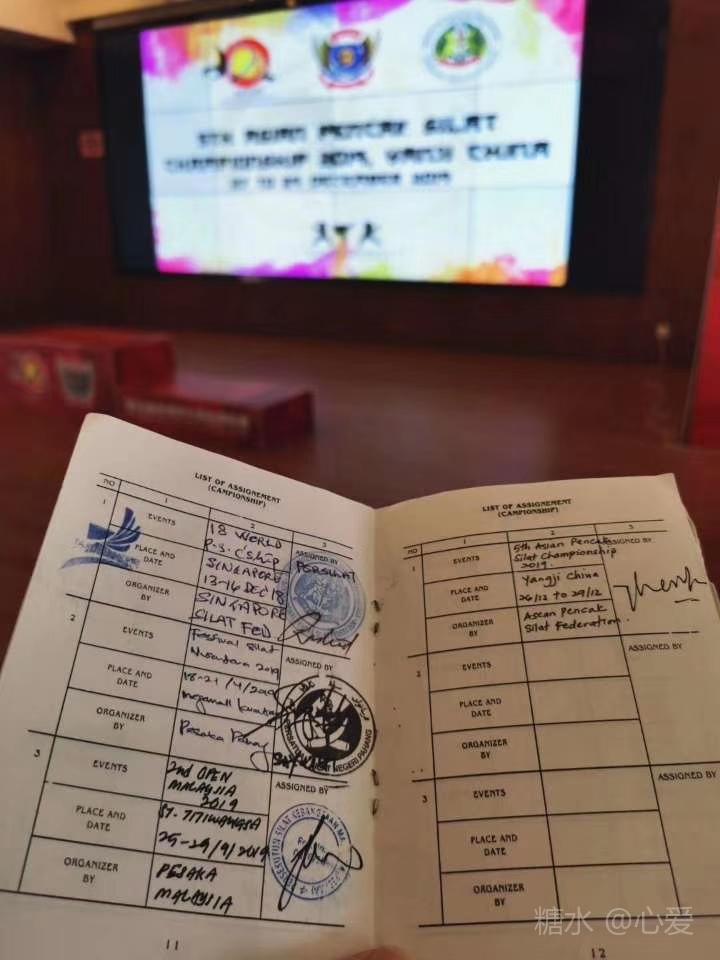 5TH ASIAN PENCAK SILAT
CHAMPIONSHIP 2019, YANJI CHINA
DECEMBER 2019
LIST OF ASSIGNEMENT
(CAMPIONSHIP)
NO 1 2 3
1 EVENTS 18 WORLD P.S. C'SHIP ASSIGNED BY
PERSILAT
PLACE AND DATE SINGAPORE 13-16 DEC 18
ORGANIZER BY SINGAPORE SILAT FED.
2 EVENTS Festival Silat Nusantara 2019 ASSIGNED BY
PLACE AND DATE 18-21/4/2019 Megamall
ORGANIZER BY Pesaka Pahang
NEGERI PAHANG
3 EVENTS 2nd OPEN MALAYSIA 2019 ASSIGNED BY
PLACE AND DATE ST. TITIWANGSA 25-29/9/2019
ORGANIZER BY PESAKA MALAYSIA
SILAT KEBANGSAAN
11
LIST OF ASSIGNEMENT
(CAMPIONSHIP)
NO 1 2 3
1 EVENTS 5th Asian Pencak Silat Championship 2019. ASSIGNED BY
PLACE AND DATE Yangji China 26/12 to 29/12
ORGANIZER BY Asean Pencak Silat Federation.
2 EVENTS ASSIGNED BY
PLACE AND DATE
ORGANIZER BY
3 EVENTS ASSIGNED BY
PLACE AND DATE
ORGANIZER BY
12
糖水 @心爱